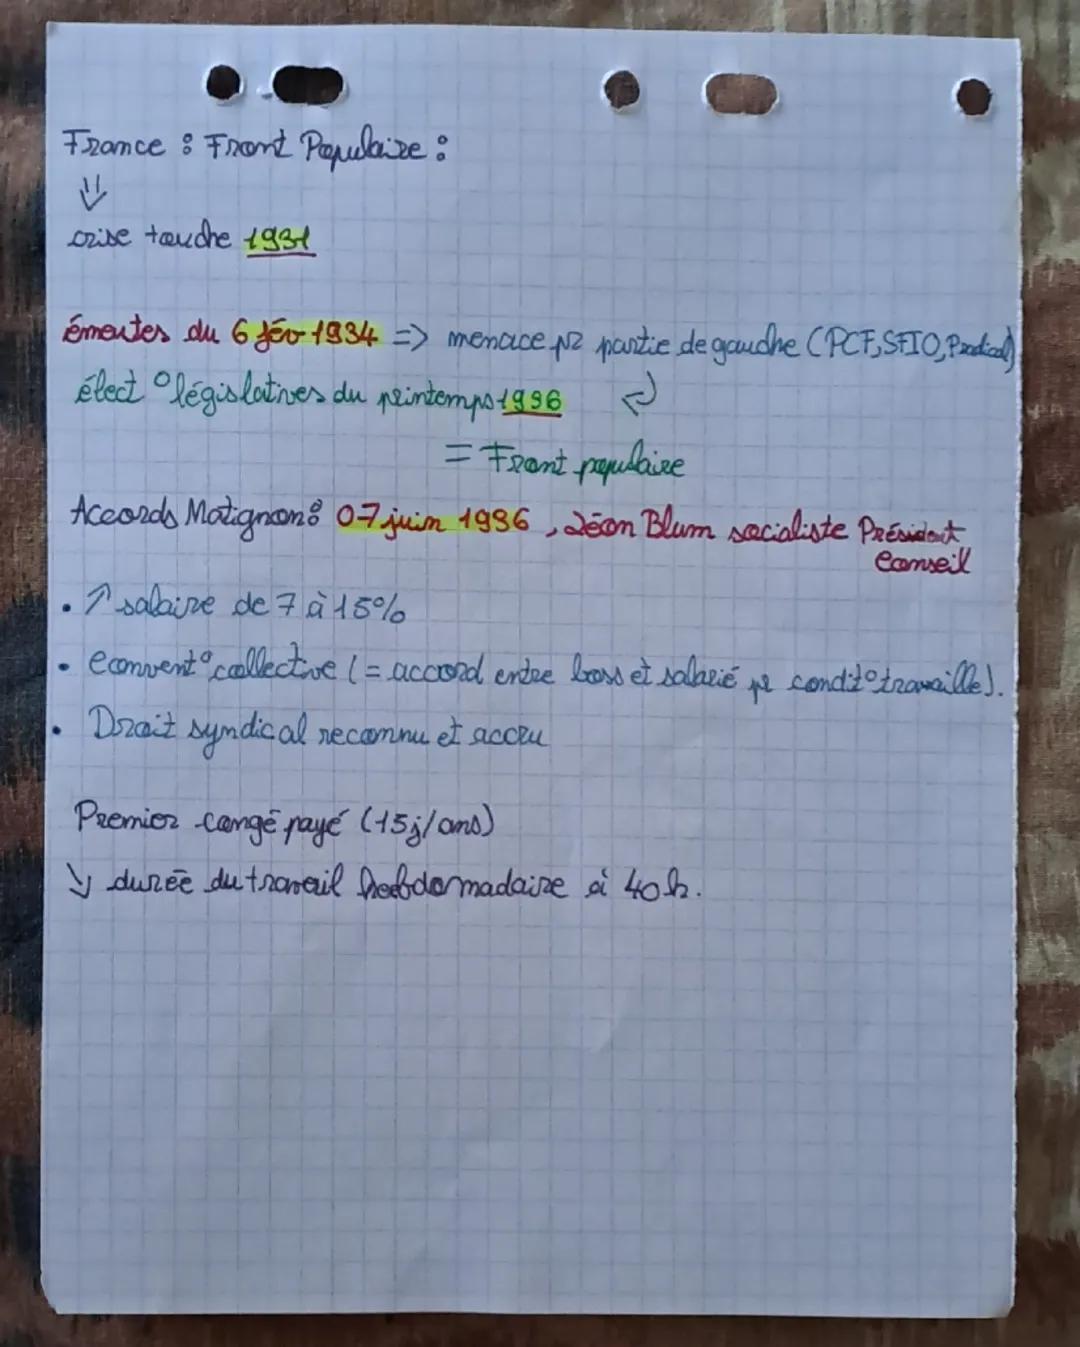 France : Front Populaire :
⇓
crise touche 1931
émeutes du 6 fév 1934 => menace pr partie de gauche (PCF, SFIO, Pradical)
élect° législatives du printemps 1936
= Front populaire
Accords Matignon : 07 juin 1936, Léon Blum socialiste Président
Conseil
• ↗ salaire de 7 à 15%
• Convent° collective (= accord entre boss et salarié pr condit° travaille).
• Droit syndical reconnu et accru
Premier congé payé (15j/ans)
↘ durée du travail hebdomadaire à 40h.